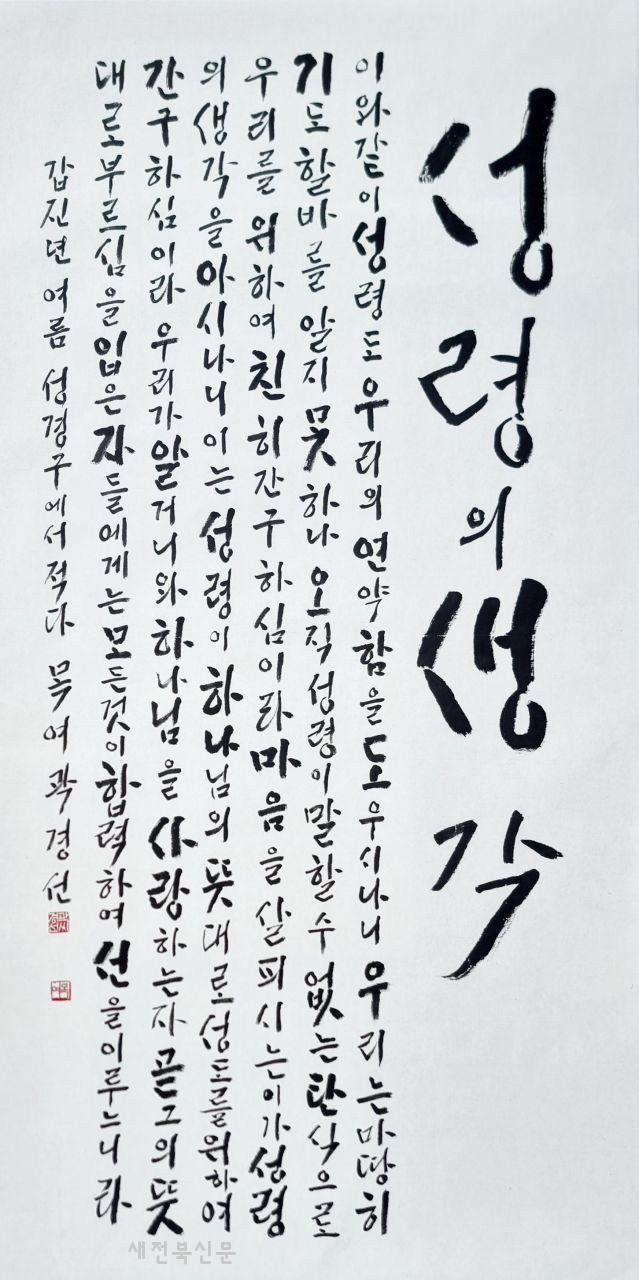 성령의생각
이와같이성령도우리의연약함을도우시나니우리는마땅히
기도할바를알지못하나오직성령이말할수없는탄식으로
우리를위하여친히간구하심이라마음을살피시는이가성령
의생각을아시나니이는성령이하나님의뜻대로성도를위하여
간구하심이라우리가알거니와하나님을사랑하는자곧그의뜻
대로부르심을입은자들에게는모든것이합력하여선을이루느니라
갑진년여름 성경구에서적다 목여곽경선
새전북신문